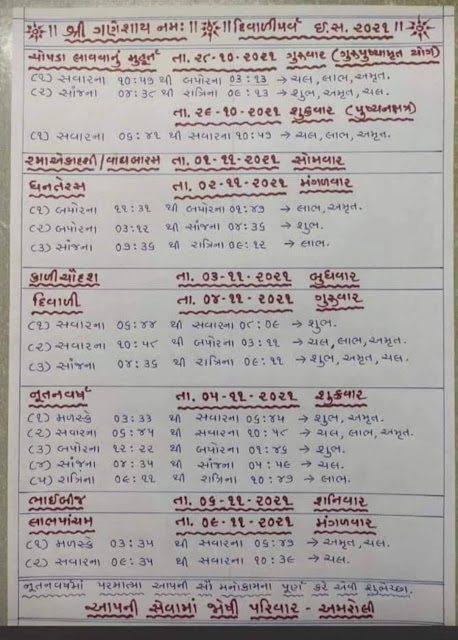 ॥ શ્રી ગણેશાય નમઃ ॥ દિવાળીપર્વ ઈ.સ. ૨૦૨૧ ॥
ચોપડા લાવવાનું મુહૂર્ત તા. ૨૮-૧૦-૨૦૨૧ ગુરૂવાર (ગુરૂપુષ્યામૃત યોગ)
(૧) સવારના ૧૦:૫૭ થી બપોરના ૦૩:૧૩ → ચલ, લાભ, અમૃત.
(૨) સાંજના ૦૪:૩૮ થી રાત્રિના ૦૯:૧૩ → શુભ, અમૃત, ચલ.
તા. ૨૯-૧૦-૨૦૨૧ શુક્રવાર (પુષ્યનક્ષત્ર)
(૧) સવારના ૦૬:૪૧ થી સવારના ૧૦:૫૭ → ચલ, લાભ, અમૃત.
રમાએકાદશી/વાઘબારસ તા. ૦૧-૧૧-૨૦૨૧ સોમવાર
ધનતેરસ તા. ૦૨-૧૧-૨૦૨૧ મંગળવાર
(૧) બપોરના ૧૧:૩૧ થી બપોરના ૦૧:૪૭ → લાભ, અમૃત.
(૨) બપોરના ૦૩:૧૨ થી સાંજના ૦૪:૩૬ → શુભ.
(૩) સાંજના ૦૭:૩૬ થી રાત્રિના ૦૯:૧૨ → લાભ.
કાળીચૌદશ તા. ૦૩-૧૧-૨૦૨૧ બુધવાર
દિવાળી તા. ૦૪-૧૧-૨૦૨૧ ગુરૂવાર
(૧) સવારના ૦૬:૪૪ થી સવારના ૦૮:૦૯ → શુભ.
(૨) સવારના ૧૦:૫૮ થી બપોરના ૦૩:૧૧ → ચલ, લાભ, અમૃત.
(૩) સાંજના ૦૪:૩૬ થી રાત્રિના ૦૯:૧૧ → શુભ, અમૃત, ચલ.
નૂતનવર્ષ તા. ૦૫-૧૧-૨૦૨૧ શુક્રવાર
(૧) મળસ્કે ૦૩:૩૩ થી સવારના ૦૬:૪૫ → શુભ, અમૃત.
(૨) સવારના ૦૬:૪૫ થી સવારના ૧૦:૫૮ → ચલ, લાભ, અમૃત.
(૩) બપોરના ૧૨:૨૨ થી બપોરના ૦૧:૪૬ → શુભ.
(૪) સાંજના ૦૪:૩૫ થી સાંજના ૦૫:૫૯ → ચલ.
(૫) રાત્રિના ૦૯:૧૧ થી રાત્રિના ૧૦:૪૭ → લાભ.
ભાઈબીજ તા. ૦૬-૧૧-૨૦૨૧ શનિવાર
લાભપાંચમ તા. ૦૯-૧૧-૨૦૨૧ મંગળવાર
(૧) મળસ્કે ૦૩:૩૫ થી સવારના ૦૬:૪૭ → અમૃત, ચલ.
(૨) સવારના ૦૯:૩૫ થી સવારના ૧૦:૩૯ → ચલ.
નૂતનવર્ષમાં પરમાત્મા આપની સૌ મનોકામના પૂર્ણ કરે એવી શુભેચ્છા.
આપની સેવામાં જોષી પરિવાર - અમરોલી